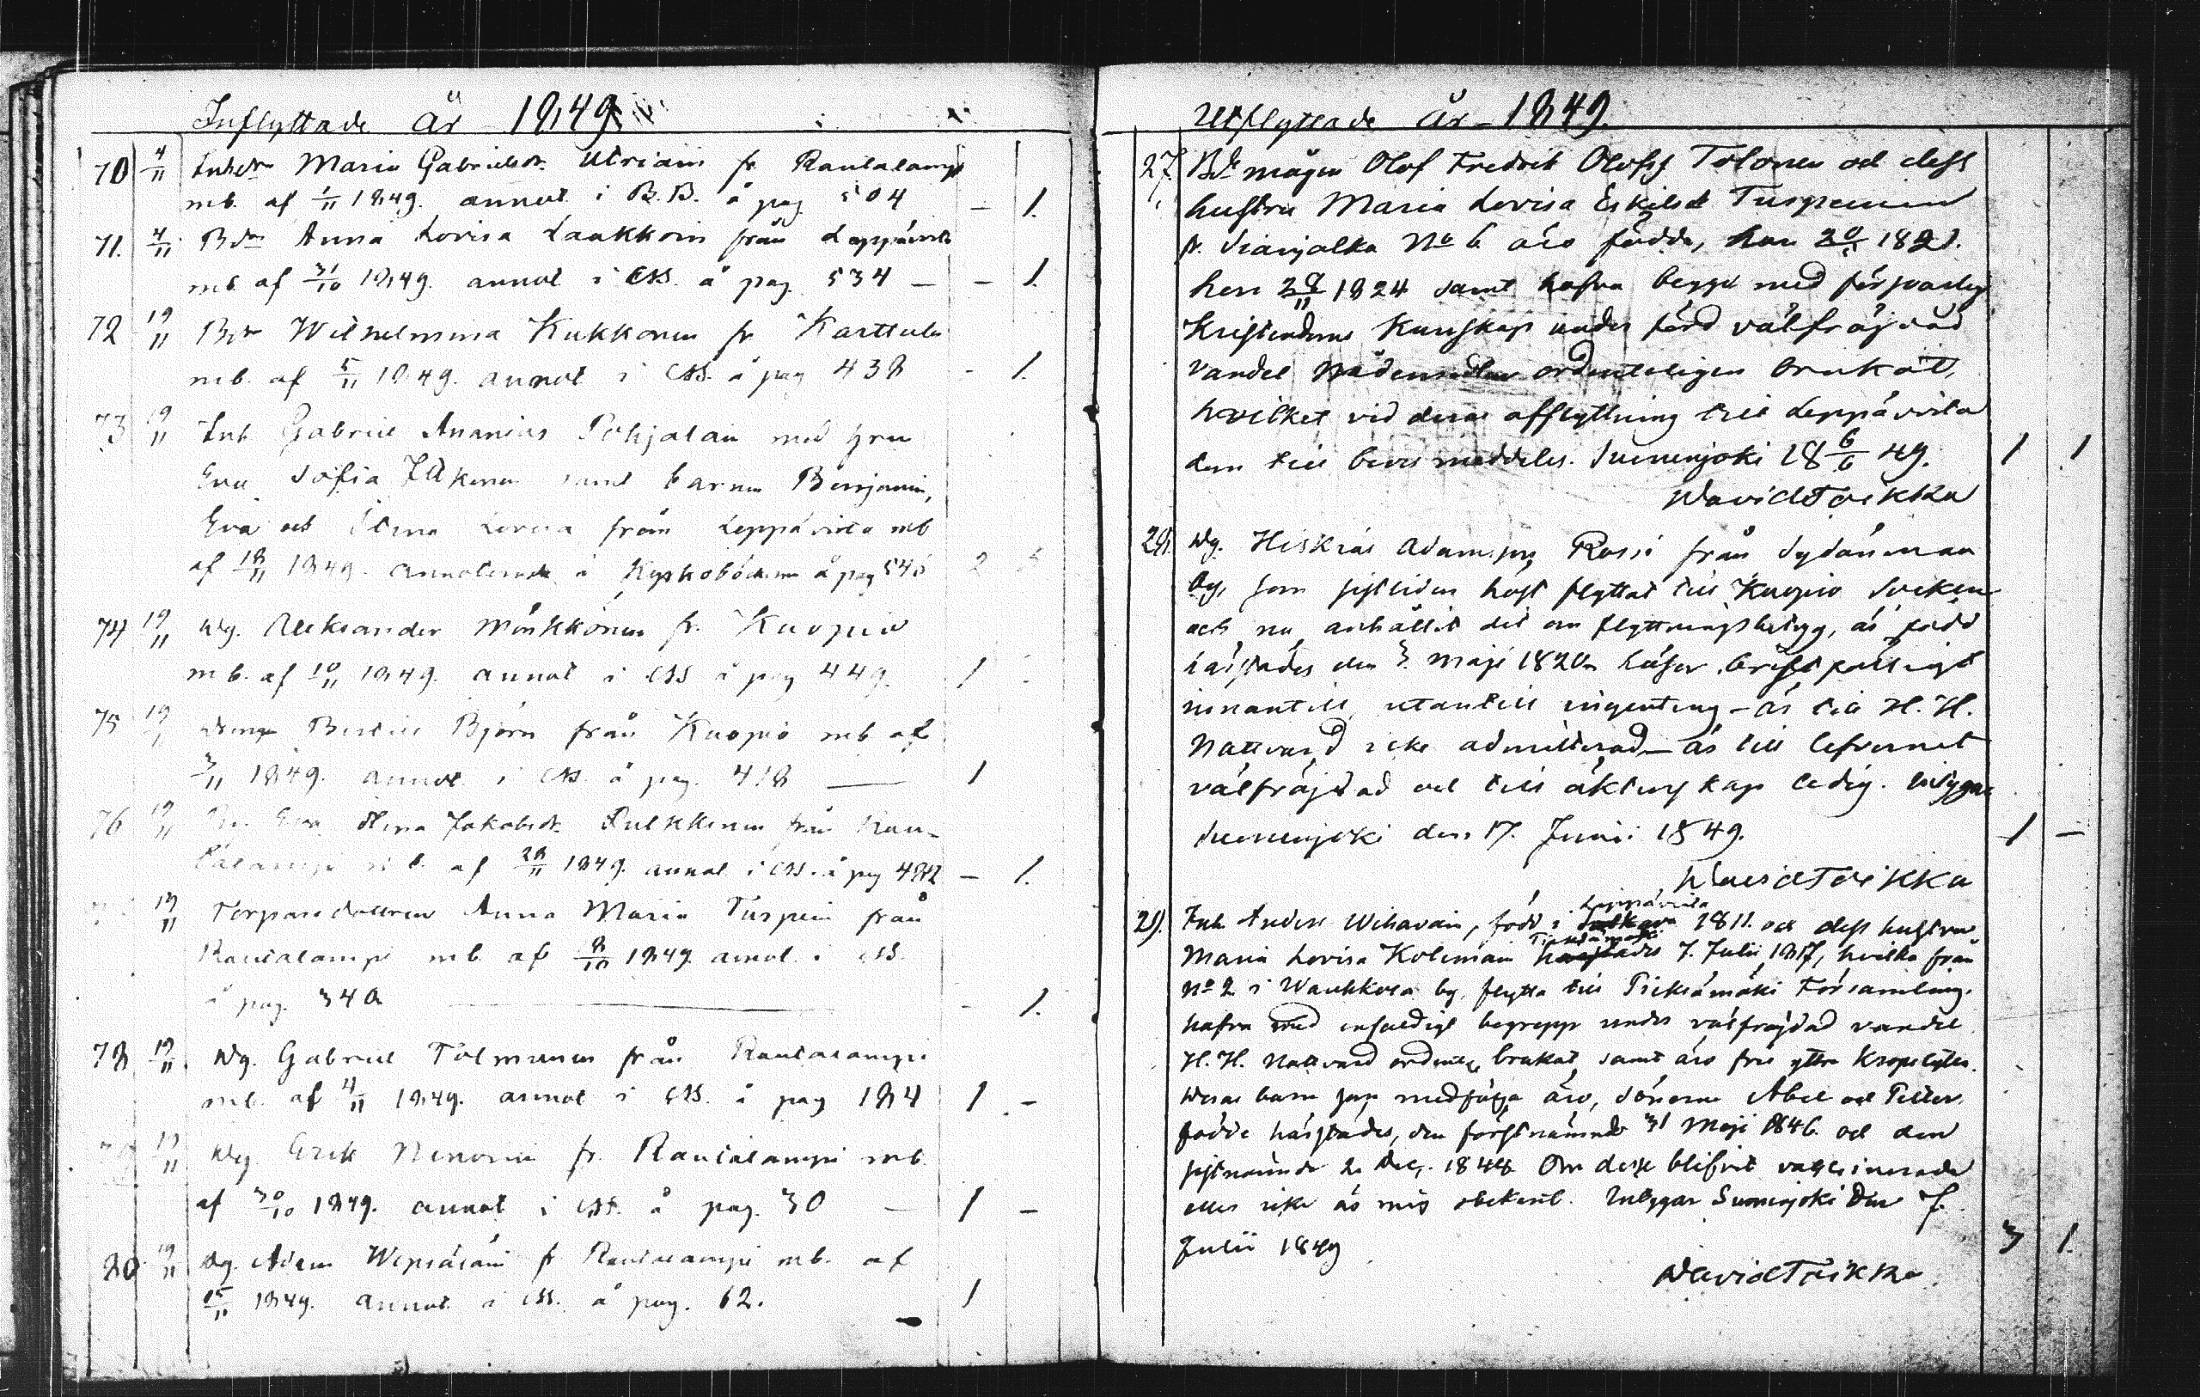 Inflyttade År 1849
70 4/11 Inhdr Maria Gabrielsdr Utriain fr Rautalampi
mb. af 1/11 1849. annot i B.B. å pag 504 — 1.
71. 4/11 Bdr Anna Lovisa Laukkoin från Leppävirta
mb af 31/10 1849. annot i å pag. 534 — — 1.
72 19/11 Bdr Wilhelmina Kukkonen fr Karttula
mb. af 5/11 1849. annot i å pag 438 - 1.
73 19/11 Inh. Gabriel Ananias Pohjalain med hru
Eva Sofia samt barnen Benjamin,
Eva och Stina Lovisa från Leppävirta mb
af 18/11 1849. i å pag 2
74 19/11 Dg. Aleksander Mönkkönen fr. Kuopio
mb. af 10/11 1849. annot i å pag 449. 1 -
75 19/11 Bertill Björn från Kuopio mb af
3/11 1849. annot. i å pag. 418 — 1
76 19/11 Eva Stina Jakobsdr Pulkkinen från Rau-
talampi mb. af 1849. annot i å pag — 1.
19/11 Torparedottren Anna Maria Turpein från
Rautalampi mb. af 8/10 1849 annot. i
å pag. 340 — - 1.
78 19/11 Dg. Gabriel Tolmunen från Rautalampi
mb. af 4/11 1849. annot i å pag 184 1 -
19/11 Dg Erik Nenonen fr. Rautalampi mb.
af 30/10 1849. annot i å pag. 30 — 1 —
80 19/11 Dg. Adam Wepsäläin fr Rautalampi mb. af
1849. annot i å pag. 62. 1
Utflyttade År 1849.
27. Bde mågen Olof Fredrik Olofss Tolonen och dess
hustru Maria Lovisa Eskilsdr Turpeinen
fr. Sianjalka No 6 äro födde, han 1821.
hon 1824 samt hafva begge med försvarlig
Kristendoms Kunskap under förd välfräjdad
vandel Nådemedlen ordenteligen brukat,
hvilket vid deras afflyttning till Leppävirta
dem till bevis meddeles. Suonenjoki 18 6/6 49. 1 1
David Toikka
28. Dg. Hiskias Adamss Rossi från Sydänmaa
by, som sistliden höst flyttat till Kuopio Socken
och nu anhållit dit om flyttningsbetyg, är född
härstädes den 3 Maji 1820. läser bristfälligt
innantill, utantill ingenting — är till H. H.
Nattvard icke admitterad — är till lefvernet
välfräjdad och till äktenskap ledig. intygar
Suonenjoki den 17. Junii 1849. 1 —
David Toikka
29. Inh Anders Wihavain, född i Leppävirta 1811. och dess hustru
Maria Lovisa Kolemain 7. Julii 1817, hvilka från
No 2 i Waukkola by, flytta till Pieksämäki Församling.
hafva med enfaldigt begrepp under välfräjdad vandel
H. H. Nattvard ordentl. brukat, samt äro frie yttre Kropslyten.
Deras barn som medfölja äro, Sönerne Abel och Petter
födde härstädes, den förstnämnde 31 Maji 1846. och den
sistnämnde 2 Dec. 1848. Om desse blifvit vaccinerade
eller icke är mig obekant. Intygar Suonenjoki den 7.
Julii 1849 3 1.
David Toikka.